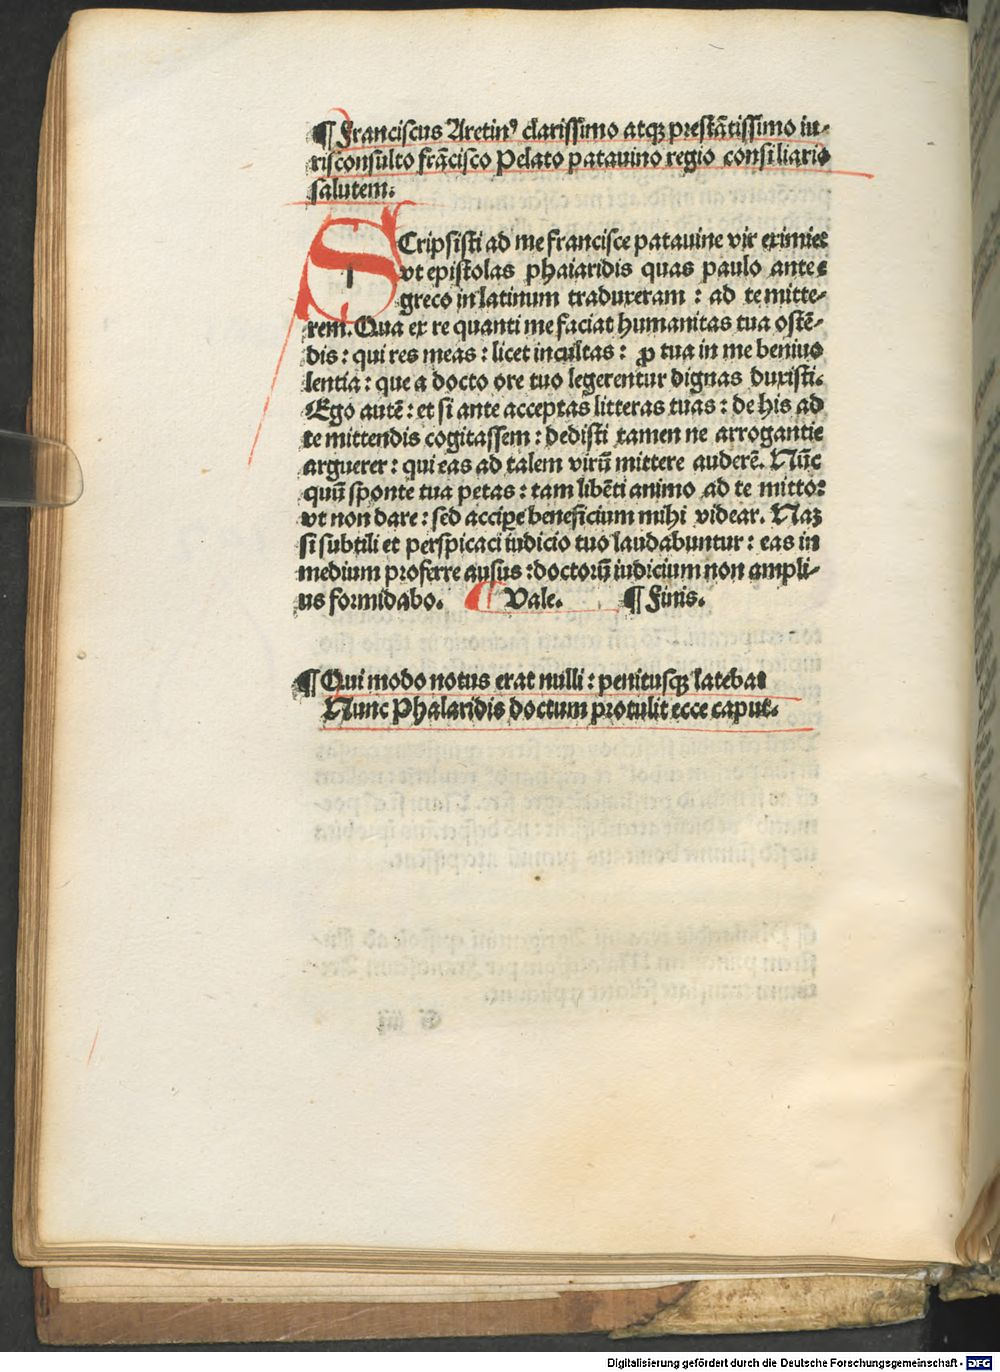 ¶ Franciscus Aretinꝰ clarissimo atqꝫ prestātissimo iu-
risconsulto frācisco Pelato patauino regio consiliario
salutem.
SCripsisti ad me francisce patauine vir eximie:
vt epistolas phalaridis quas paulo ante e
greco in latinum traduxeram : ad te mitte-
rem. Qua ex re quanti me faciat humanitas tua ostē-
dis : qui res meas : licet incultas : ꝓ tua in me beniuo
lentia : que a docto ore tuo legerentur dignas duxisti.
Ego autē : et si ante acceptas litteras tuas : de his ad
te mittendis cogitassem : dedisti tamen ne arrogantie
arguerer : qui eas ad talem virū mittere auderē. Nūc
quū sponte tua petas : tam libēti animo ad te mitto:
vt non dare : sed accipe beneficium mihi videar. Naꝫ
si subtili et perspicaci iudicio tuo laudabuntur : eas in
medium proferre ausus : doctorū iudicium non ampli-
us formidabo. Vale. ¶ Finis.
¶ Qui modo notus erat nulli : penitusqꝫ latebat
Nunc Phalaridis doctum protulit ecce caput.
Digitalisierung gefördert durch die Deutsche Forschungsgemeinschaft - DFG